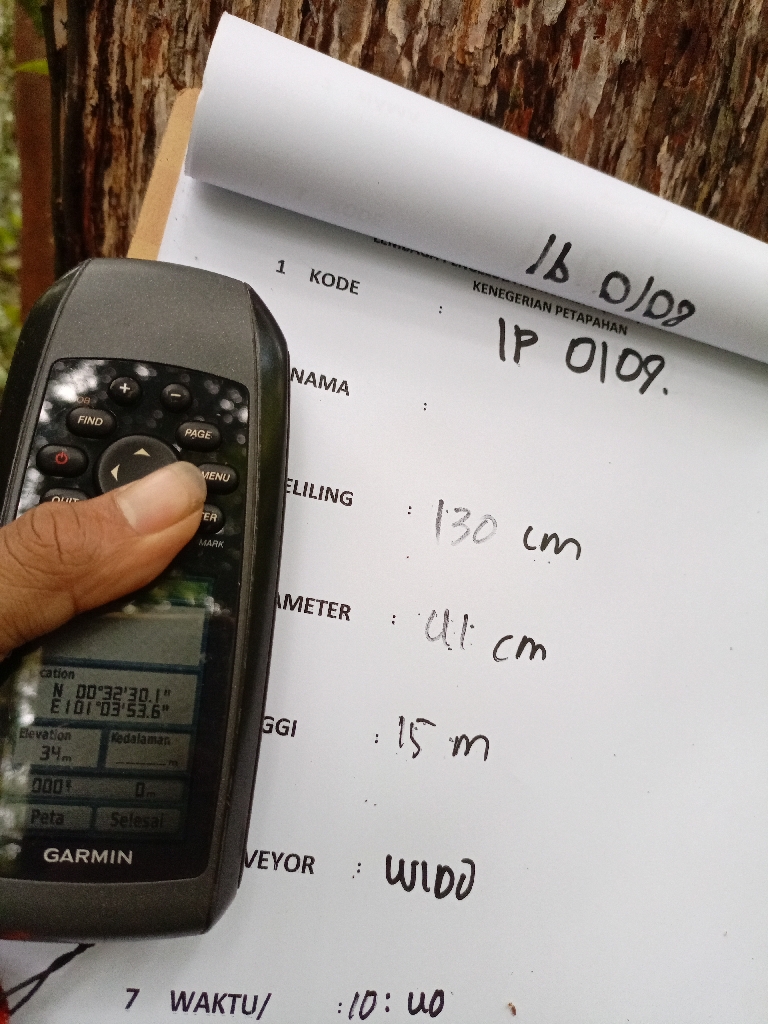 1b 0108
KENEGERIAN PETAPAHAN
1 KODE : IP 0109.
NAMA :
ELILING : 130 cm
AMETER : 41 cm
GGI : 15 m
VEYOR : WIDO
7 WAKTU/ : 10:40
+ -
FIND PAGE
MENU
QUIT TER
MARK
cation
N 00°32'30.1"
E101°03'53.6"
Elevation Kedalaman
34m m
000° 0m
Peta Selesai
GARMIN